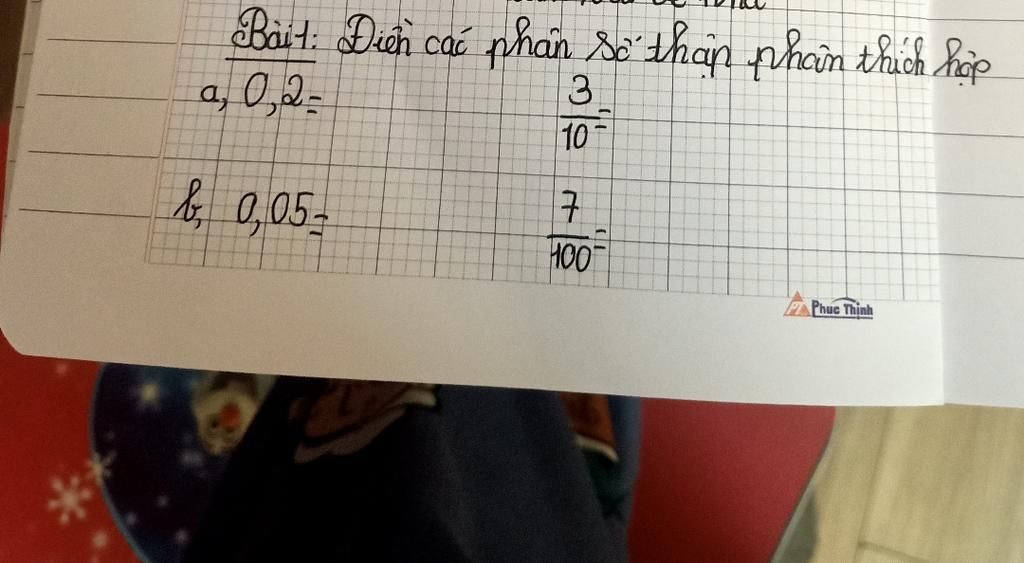 Bài 1: Điền các phân số thập phân thích hợp
a, 0,2= 3/10=
b, 0,05= 7/100=
PT Phuc Thinh